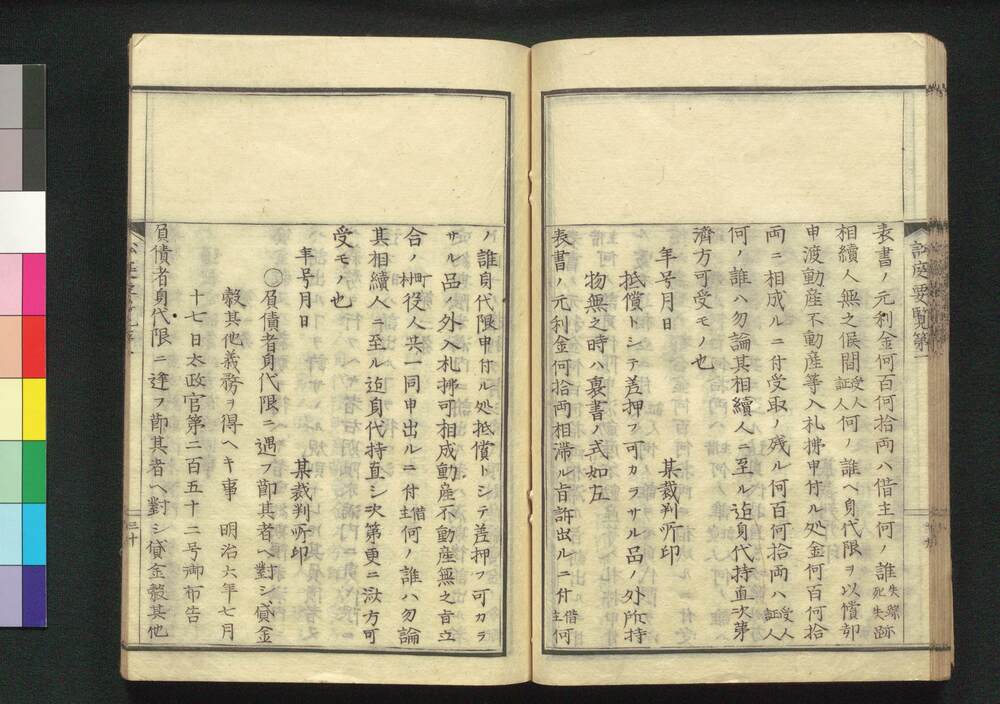 訟庭要覧第一
表書ノ元利金何百何拾両ハ借主何ノ誰失踪跡死失
相續人無之候間受人証人何ノ誰ヘ身代限ヲ以償却
申渡動産不動産等入札拂申付ル処金何百何拾
両ニ相成ルニ付受取ノ残ル何百何拾両ハ受人証人
何ノ誰ハ勿論其相續人ニ至ル迠身代持直次第
濟方可受モノ也
年号月日
某裁判所印
抵償トシテ差押フ可カラサル品ノ外所持
物無之時ハ裏書ノ式如左
表書ノ元利金何拾両相滞ル旨訴出ルニ付借主何
ノ誰身代限申付ル処抵償トシテ差押フ可カラ
サル品ノ外入札拂可相成動産不動産無之旨立
合ノ町村役人共一同申出ルニ付借主何ノ誰ハ勿論
其相續人ニ至ル迠身代持直シ次第更ニ済方可
受モノ也
年号月日
某裁判所印
〇負債者身代限ニ遇フ節其者ヘ對シ貸金
穀其他義務ヲ得ヘキ事 明治六年七月
十七日太政官第二百五十二号御布告
負債者身代限ニ逢フ節其者ヘ對シ貸金穀其他
三十